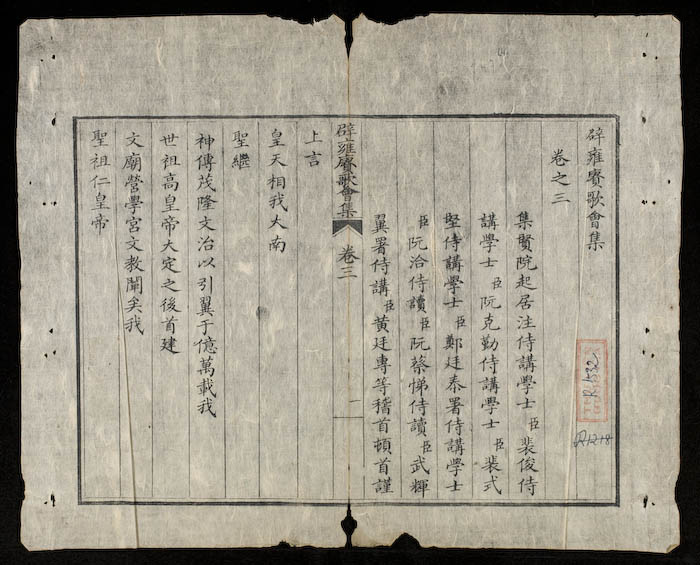 辟雍賡歌會集
卷之三
集賢院起居注侍講學士臣裴俊侍
講學士臣阮克勤侍講學士臣裴式
堅侍講學士臣鄭廷泰署侍講學士
臣阮洽侍讀臣阮蔡悌侍讀臣武輝
翼署侍講臣黃廷專等稽首頓首謹
辟雍賡歌會集 卷三 一
上言
皇天相我大南
聖繼
神傳茂隆文治以引翼于億萬載我
世祖高皇帝大定之後首建
文廟營學宮文教闡矣我
聖祖仁皇帝
R.1532